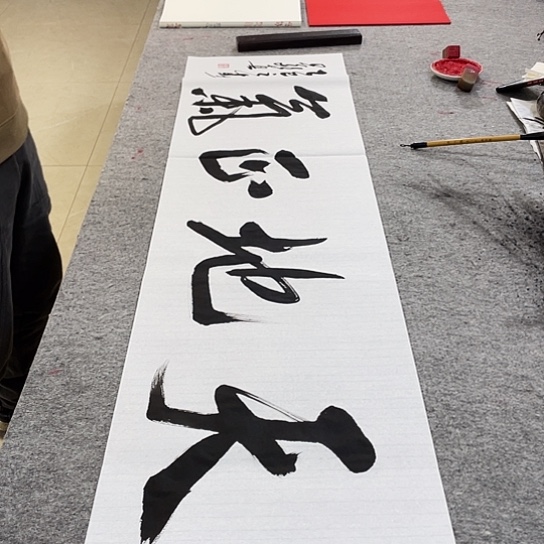 天地正氣